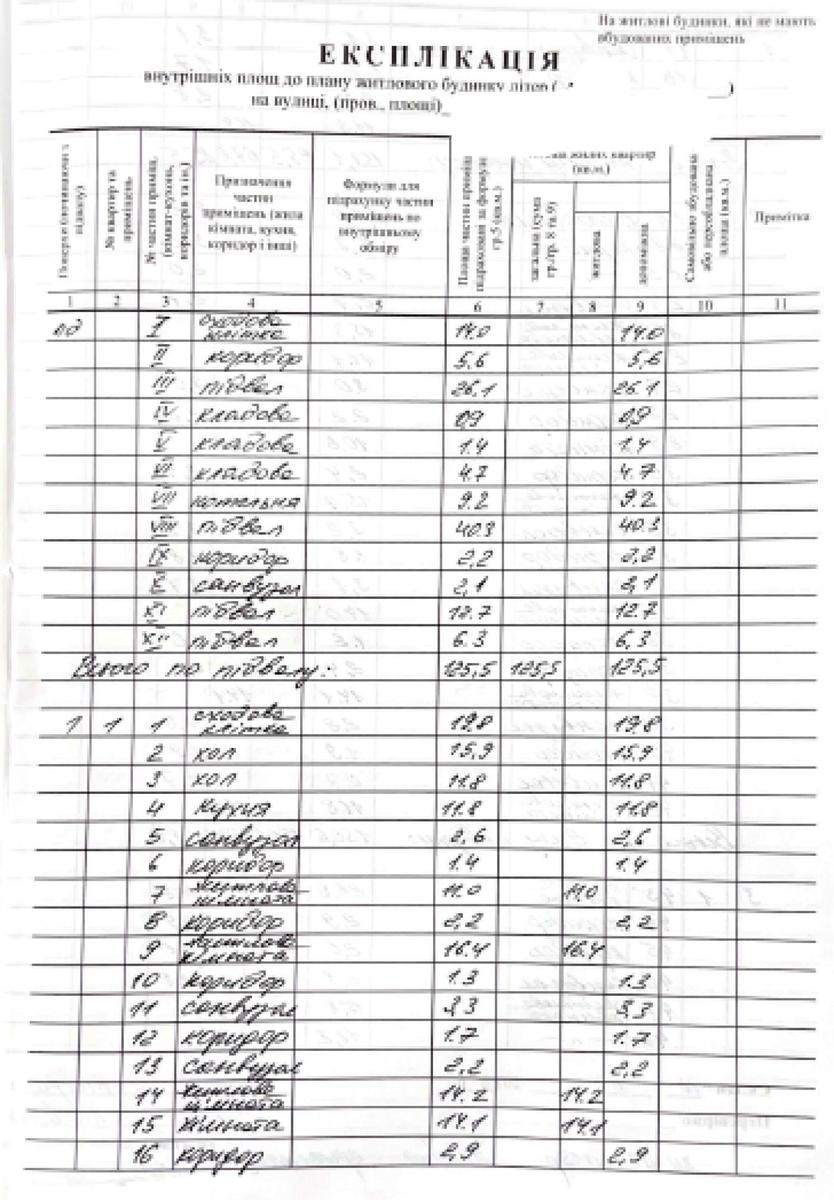 На житлові будинки, які не мають
вбудованих приміщень
ЕКСПЛІКАЦІЯ
внутрішніх площ до плану житлового будинку літер (
)
на вулиці, (пров., площі)_
Поверхи (починаючи з підвалу)
№ квартир та приміщень
№ частин приміщ. (кімнат-кухонь, коридорів та ін.)
Призначення частин приміщень (жила кімната, кухня, коридор і інші)
Формули для підрахунку частин приміщень по внутрішньому обміру
Площа частин приміщ. підрахована за формулою гр.5 (кв.м.)
жилих квартир (кв.м.)
загальна (сума гр./гр. 8 та 9)
житлова
допоміжна
Самовільно збудована або переобладнана площа (кв.м.)
Примітка
1 2 3 4 5 6 7 8 9 10 11
пд I сходова клітка 14.0 14.0
II коридор 5,6 5,6
III підвал 26,1 26.1
IV кладова 0,9 0,9
V кладова 1.4 1.4
VI кладова 4.7 4.7
VII котельня 9.2 9.2
VIII підвал 40.3 40.3
IX коридор 2,2 2,2
X санвузол 2,1 2,1
XI підвал 12.7 12.7
XII підвал 6.3 6.3
Всього по підвалу: 125,5 125,5 125,5
1 1 1 сходова клітка 19.8 19.8
2 хол 15,9 15.9
3 хол 11.8 11.8
4 кухня 11.8 11.8
5 санвузол 2,6 2,6
6 коридор 1.4 1.4
7 житлова кімната 11.0 11.0
8 коридор 2,2 2,2
9 житлова кімната 16.4 16.4
10 коридор 1.3 1.3
11 санвузол 3,3 3,3
12 коридор 1.7 1.7
13 санвузол 2,2 2,2
14 житлова кімната 14.2 14.2
15 кімната 14.1 14.1
16 коридор 2,9 2,9